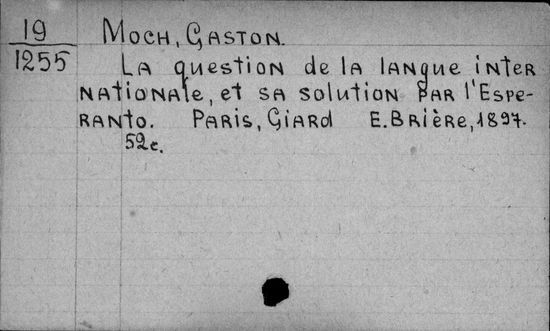 19
1255
Moch, Gaston.
La question de la langue inter
nationale, et sa solution par l'Espe-
ranto. Paris, Giard E. Brière, 1897.
52c.